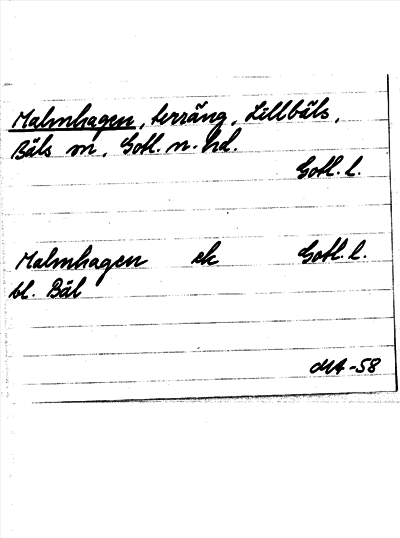 Malmhagen, terräng, Lillbäls,
Bäls sn, Gotl. n. hd.
Gotl. l.
Malmhagen ek Gotl. l.
bl. Bäl
MA-58